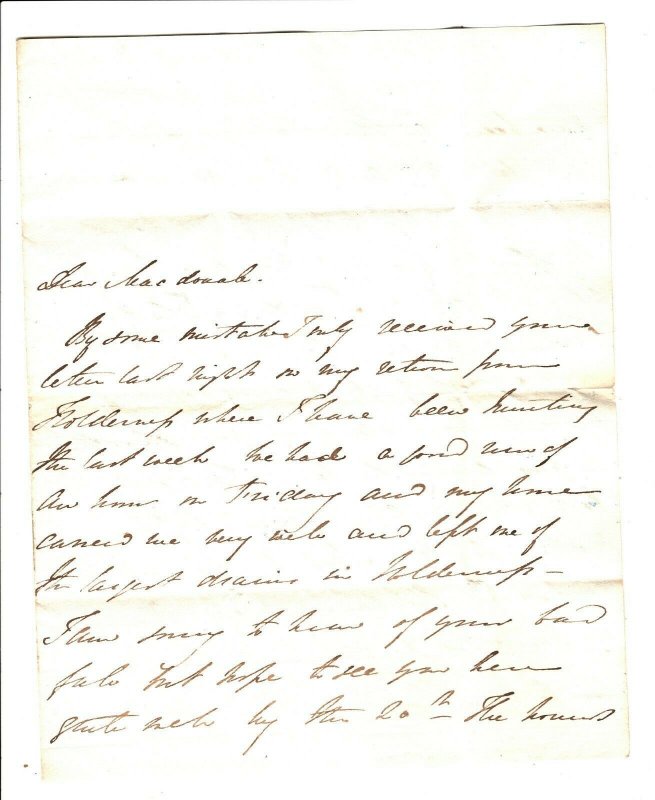 Dear Macdonald.
By some mistake I only received your
letter last night on my return from
Holderness where I have been hunting
the last week we had a good run of
an hour on Friday and my horse
carried me very well and lept one of
the largest drains in Holderness -
I am sorry to hear of your bad
fall but hope to see you here
quite well by the 20th The hounds